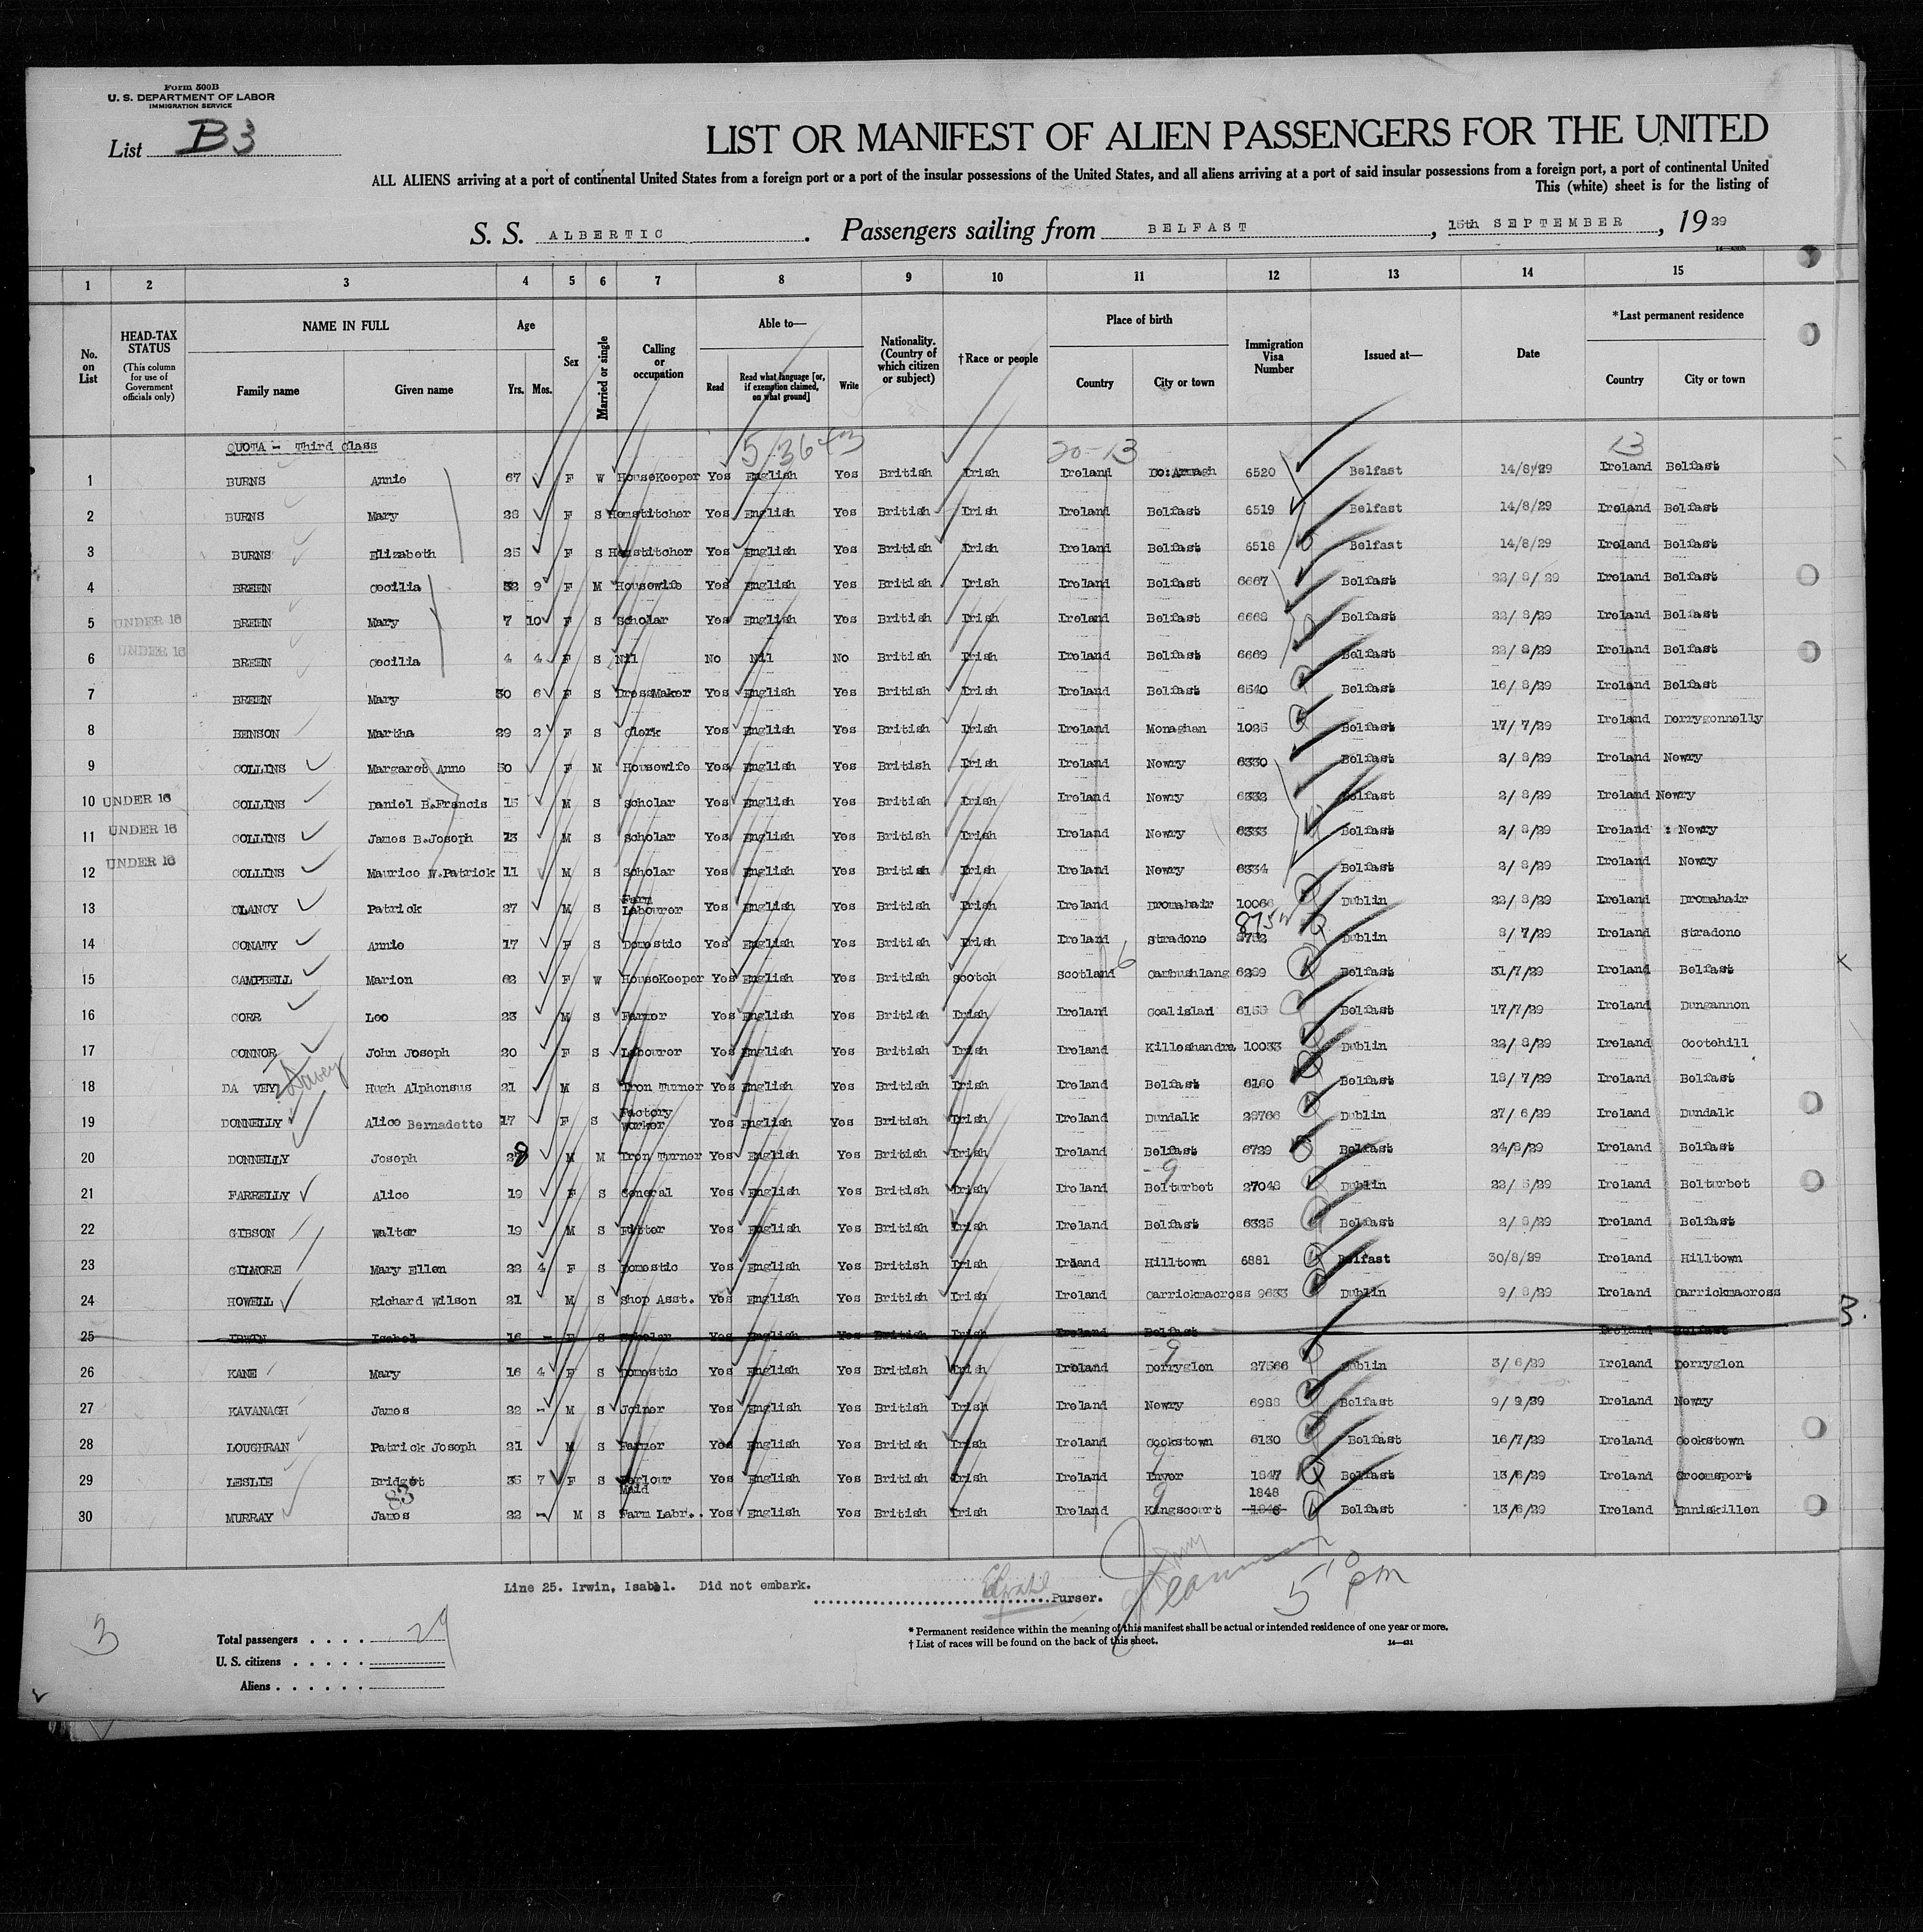 Form 500B
U. S. DEPARTMENT OF LABOR
IMMIGRATION SERVICE
List B3
LIST OR MANIFEST OF ALIEN PASSENGERS FOR THE UNITED
ALL ALIENS arriving at a port of continental United States from a foreign port or a port of the insular possessions of the United States, and all aliens arriving at a port of said insular possessions from a foreign port, a port of continental United
This (white) sheet is for the listing of
S. S. ALBERTIC. Passengers sailing from BELFAST, 15th SEPTEMBER, 1929
1 2 3 4 5 6 7 8 9 10 11 12 13 14 15
No. on List
HEAD-TAX STATUS
(This column for use of Government officials only)
NAME IN FULL
Family name Given name
Age
Yrs. Mos.
Sex
Married or single
Calling or occupation
Able to—
Read Read what language [or, if exemption claimed, on what ground] Write
Nationality. (Country of which citizen or subject)
†Race or people
Place of birth
Country City or town
Immigration Visa Number
Issued at—
Date
*Last permanent residence
Country City or town
QUOTA - Third Class 20-13 13
1 BURNS Annie 67 F W HouseKeeper Yes English Yes British Irish Ireland Co:Armagh 6520 Belfast 14/8/29 Ireland Belfast
2 BURNS Mary 28 F S Hemstitcher Yes English Yes British Irish Ireland Belfast 6519 Belfast 14/8/29 Ireland Belfast
3 BURNS Elizabeth 25 F S Hemstitcher Yes English Yes British Irish Ireland Belfast 6518 Belfast 14/8/29 Ireland Belfast
4 BREEN Cecilia 32 9 F M Housewife Yes English Yes British Irish Ireland Belfast 6667 Belfast 22/8/29 Ireland Belfast
5 UNDER 16 BREEN Mary 7 10 F S Scholar Yes English Yes British Irish Ireland Belfast 6668 Belfast 22/8/29 Ireland Belfast
6 UNDER 16 BREEN Cecilia 4 4 F S Nil No Nil No British Irish Ireland Belfast 6669 Belfast 22/8/29 Ireland Belfast
7 BREEN Mary 30 6 F S DressMaker Yes English Yes British Irish Ireland Belfast 6540 Belfast 16/8/29 Ireland Belfast
8 BENSON Martha 29 2 F S Clerk Yes English Yes British Irish Ireland Monaghan 1025 Belfast 17/7/29 Ireland Derrygonnelly
9 COLLINS Margaret Anne 50 F M Housewife Yes English Yes British Irish Ireland Newry 6330 Belfast 2/8/29 Ireland Newry
10 UNDER 16 COLLINS Daniel B.Francis 15 M S Scholar Yes English Yes British Irish Ireland Newry 6332 Belfast 2/8/29 Ireland Newry
11 UNDER 16 COLLINS James B.Joseph 13 M S Scholar Yes English Yes British Irish Ireland Newry 6333 Belfast 2/8/29 Ireland : Newry
12 UNDER 16 COLLINS Maurice W.Patrick 11 M S Scholar Yes English Yes British Irish Ireland Newry 6334 Belfast 2/8/29 Ireland Newry
13 CLANCY Patrick 27 M S Farm Labourer Yes English Yes British Irish Ireland Dromahair 10066 Dublin 22/8/29 Ireland Dromahair
14 CONATY Annie 17 F S Domestic Yes English Yes British Irish Ireland Stradone Dublin 8/7/29 Ireland Stradone
15 CAMPBELL Marion 62 F W HouseKeeper Yes English Yes British Scotch Scotland 6 Cambushlang 6289 Belfast 31/7/29 Ireland Belfast
16 CORR Leo 23 M S Farmer Yes English Yes British Irish Ireland Coalislan 6155 Belfast 17/7/29 Ireland Dungannon
17 CONNOR John Joseph 20 F S Labourer Yes English Yes British Irish Ireland Killeshandra 10033 Dublin 22/8/29 Ireland Cootehill
18 DA VEY Davey Hugh Alphonsus 21 M S Iron Turner Yes English Yes British Irish Ireland Belfast 6160 Belfast 18/7/29 Ireland Belfast
19 DONNELLY Alice Bernadette 17 F S Factory Worker Yes English Yes British Irish Ireland Dundalk 28766 Dublin 27/6/29 Ireland Dundalk
20 DONNELLY Joseph 28 M M Iron Turner Yes English Yes British Irish Ireland Belfast 6729 Belfast 24/8/29 Ireland Belfast
21 FARRELLY Alice 19 F S General Yes English Yes British Irish Ireland Belturbet 27048 Dublin 22/5/29 Ireland Belturbet
22 GIBSON Walter 19 M S Fitter Yes English Yes British Irish Ireland Belfast 6325 Belfast 2/8/29 Ireland Belfast
23 GILMORE Mary Ellen 22 4 F S Domestic Yes English Yes British Irish Ireland Hilltown 6881 Belfast 30/8/29 Ireland Hilltown
24 HOWELL Richard Wilson 21 M S Shop Asst. Yes English Yes British Irish Ireland Carrickmacross 9633 Dublin 9/8/29 Ireland Carrickmacross
25 IRWIN Isabel 16 - F S Scholar Yes English Yes British Irish Ireland Belfast Ireland Belfast 3.
26 KANE Mary 16 4 F S Domestic Yes English Yes British Irish Ireland Derryglen 27566 Dublin 3/6/29 Ireland Derryglen
27 KAVANAGH James 22 - M S Joiner Yes English Yes British Irish Ireland Newry 6988 Belfast 9/9/29 Ireland Newry
28 LOUGHRAN Patrick Joseph 21 M S Farmer Yes English Yes British Irish Ireland Cookstown 6130 Belfast 16/7/29 Ireland Cookstown
29 LESLIE Bridget 35 7 F S Parlour Maid Yes English Yes British Irish Ireland Inver 1847 Belfast 13/8/29 Ireland Groomsport
30 MURRAY James 22 - M S Farm Labr.. Yes English Yes British Irish Ireland Kingscourt 1848 Belfast 13/8/29 Ireland Enniskillen
Line 25. Irwin, Isabel. Did not embark. Purser. 5 10 pm
3
Total passengers . . . . 29
U. S. citizens . . . . .
Aliens . . . . . .
* Permanent residence within the meaning of this manifest shall be actual or intended residence of one year or more.
† List of races will be found on the back of this sheet.
14—421